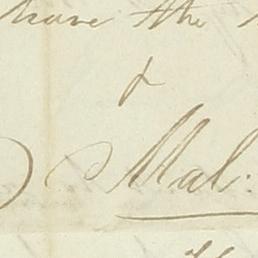 have the
&
Mal.